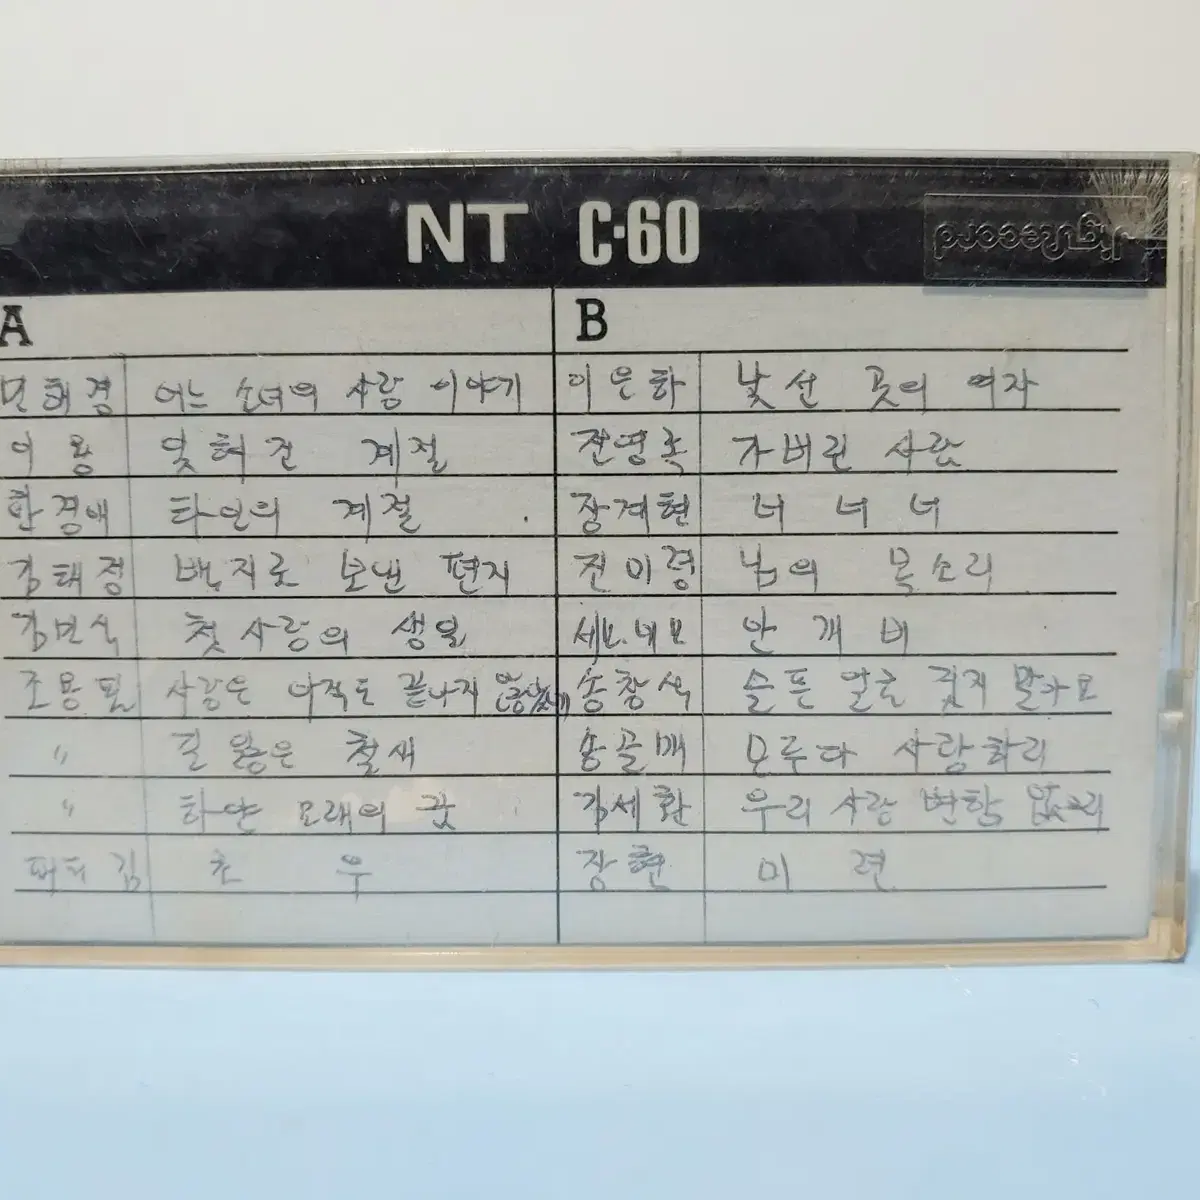 NT C·60
JiguRecord
A
민해경 어느 소녀의 사랑 이야기
이 용 잊혀진 계절
한경애 타인의 계절
김태정 백지로 보낸 편지
김민식 첫사랑의 생일
조용필 사랑은 아직도 끝나지
〃 길 잃은 철새
〃 하얀 모래의 꿈
패티김 초 우
B
이은하 낯선 곳의 여자
전영록 가버린 사랑
장계현 너 너 너
진미령 님의 목소리
세보.네보 안 개 비
송창식 슬픈 얼굴 짓지 말아요
송골매 모두다 사랑하리
김세환 우리 사랑 변함 없으리
장현 미 련